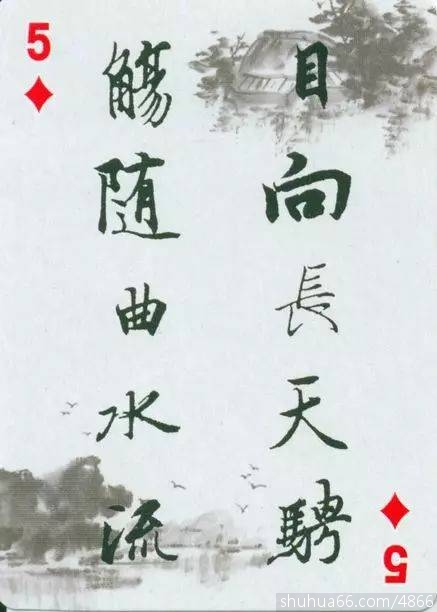 5
目向長天騁
觴随曲水流
5
shuhua66.com/4866